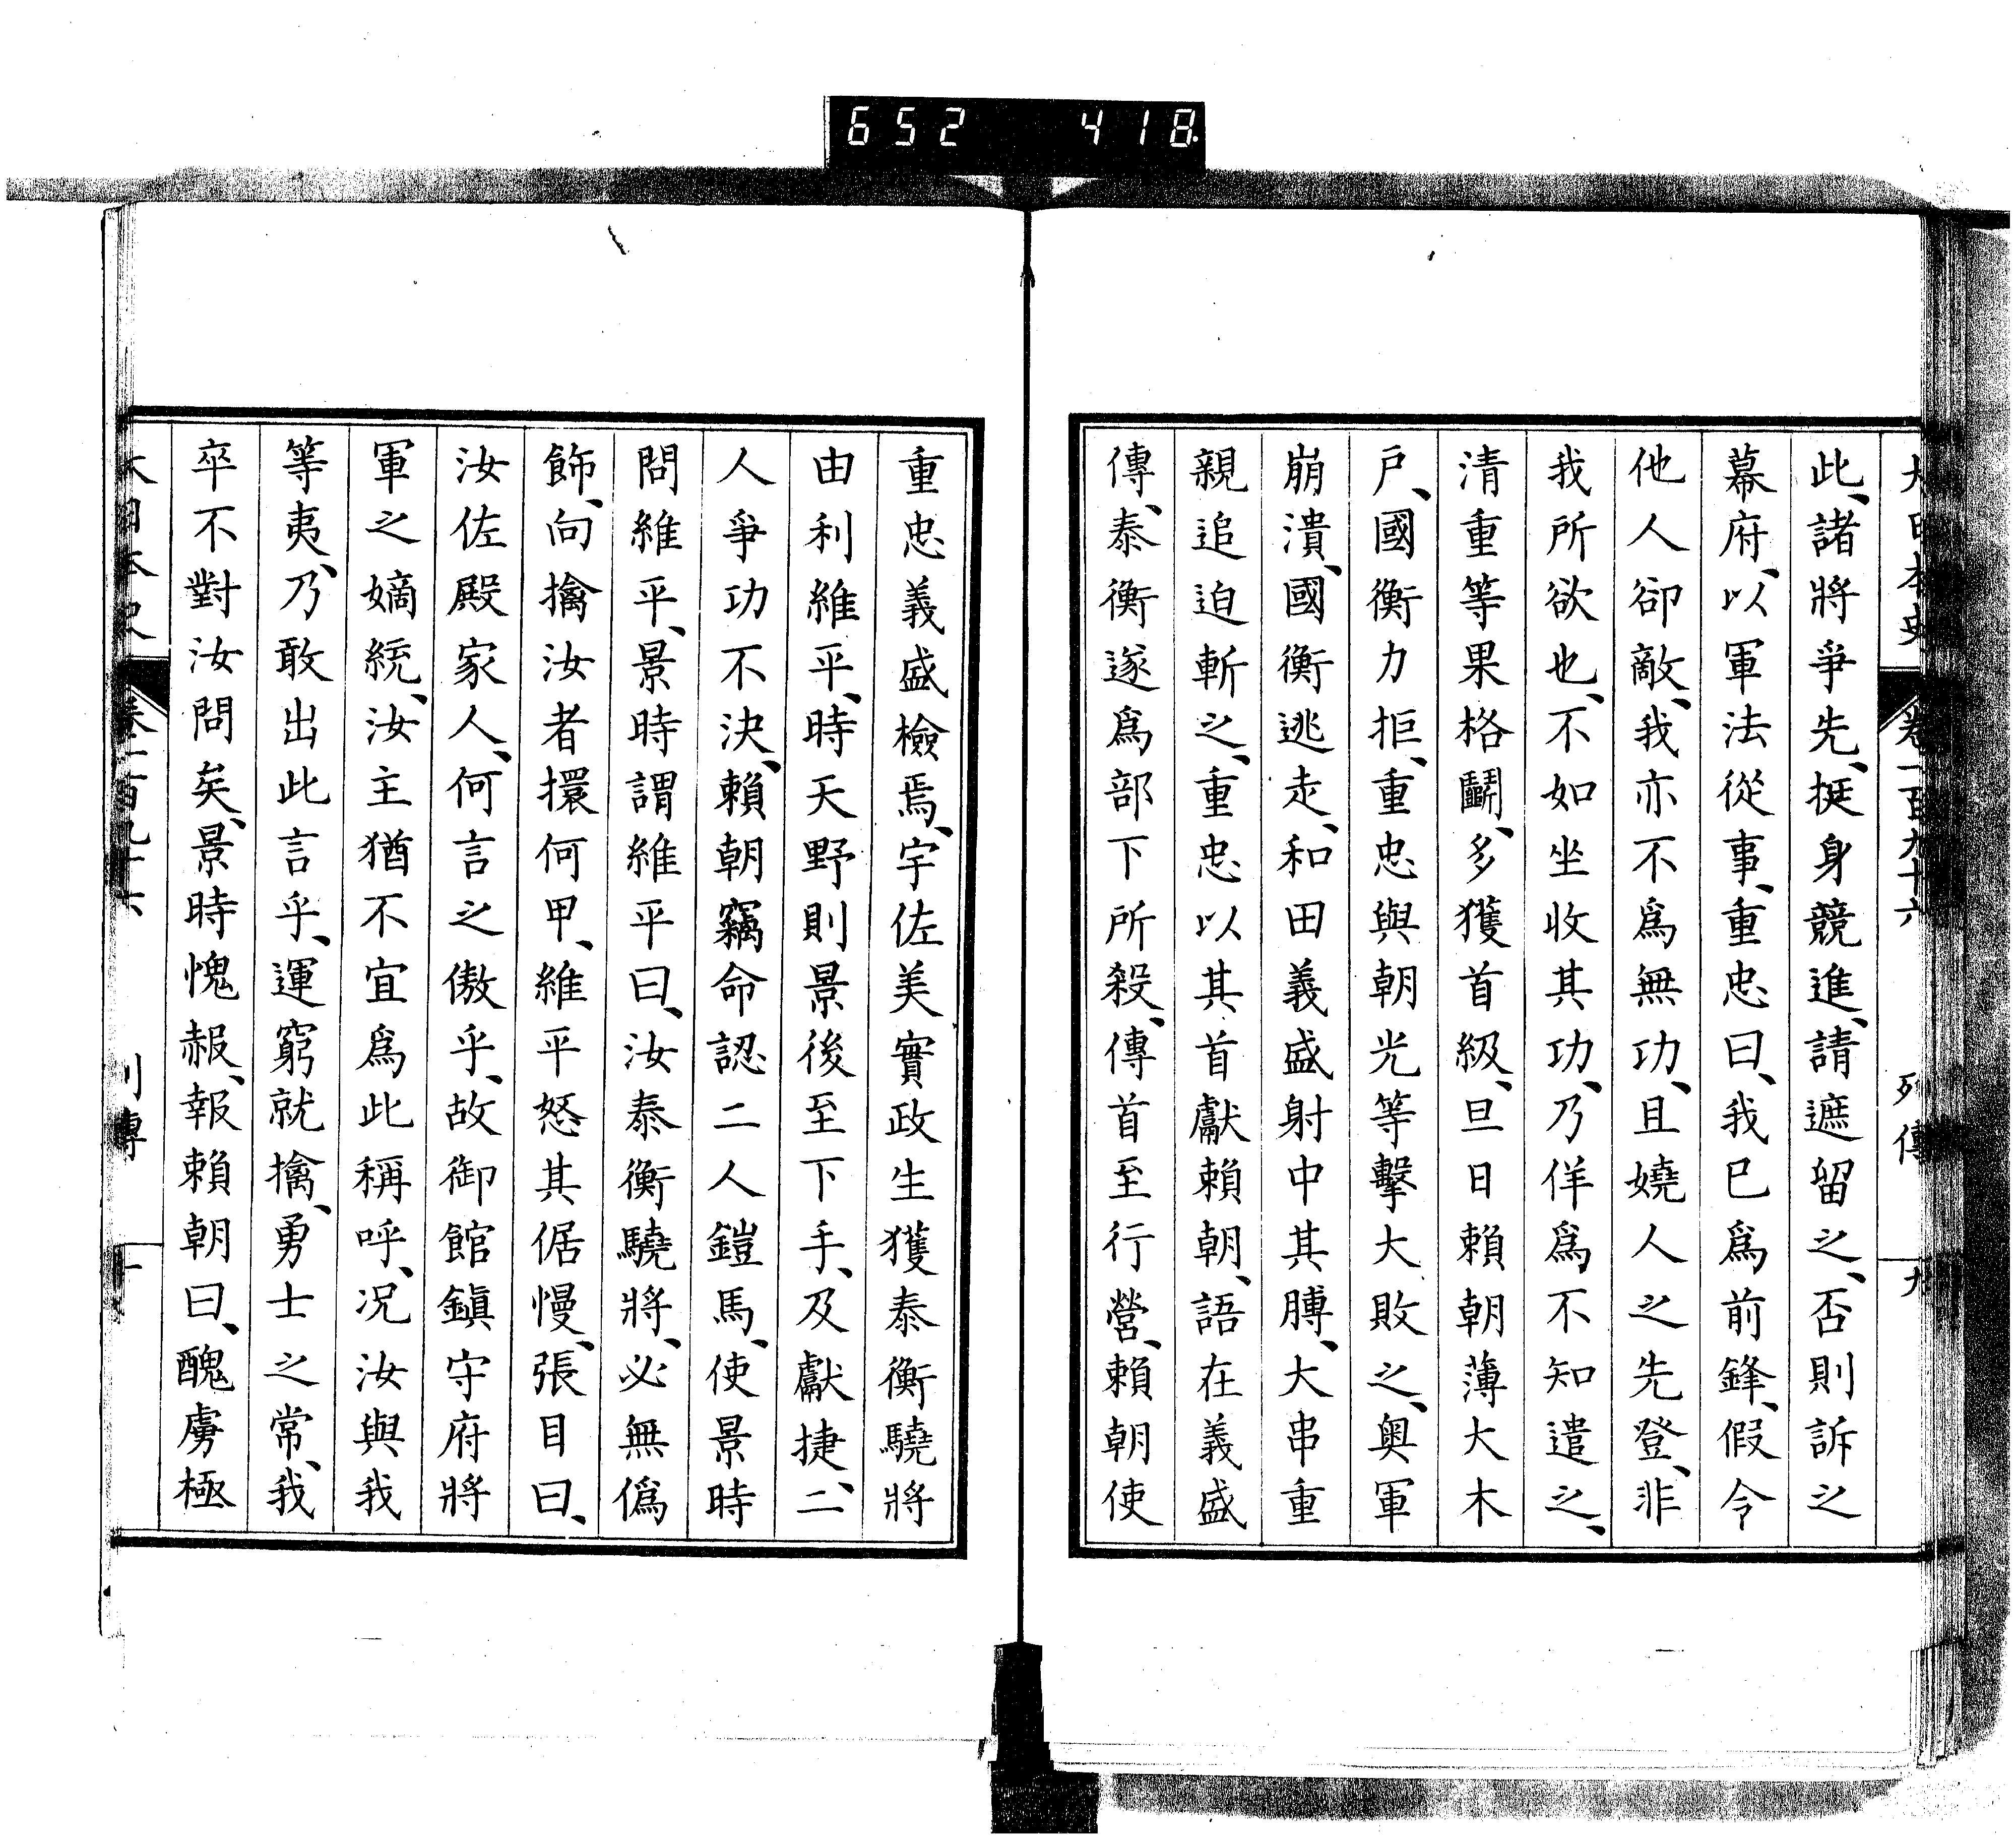 652 418
大日本史 卷一百九十六 列傳 九
此、諸將爭先、挺身競進、請遮留之、否則訴之
幕府、以軍法從事、重忠曰、我已爲前鋒、假令
他人卻敵、我亦不爲無功、且嬈人之先登、非
我所欲也、不如坐收其功、乃佯爲不知遣之、
清重等果格鬭、多獲首級、旦日賴朝薄大木
戶、國衡力拒、重忠與朝光等擊大敗之、奧軍
崩潰、國衡逃走、和田義盛射中其膊、大串重
親追迫斬之、重忠以其首獻賴朝、語在義盛
傳、泰衡遂爲部下所殺、傳首至行營、賴朝使
重忠義盛檢焉、宇佐美實政生獲泰衡驍將
由利維平、時天野則景後至下手、及獻捷、二
人爭功不決、賴朝竊命認二人鎧馬、使景時
問維平、景時謂維平曰、汝泰衡驍將、必無僞
飾、向擒汝者擐何甲、維平怒其倨慢、張目曰、
汝佐殿家人、何言之傲乎、故御館鎭守府將
軍之嫡統、汝主猶不宜爲此稱呼、况汝與我
等夷、乃敢出此言乎、運窮就擒、勇士之常、我
卒不對汝問矣、景時愧赧、報賴朝曰、醜虜極
大日本史 卷一百九十六 列傳